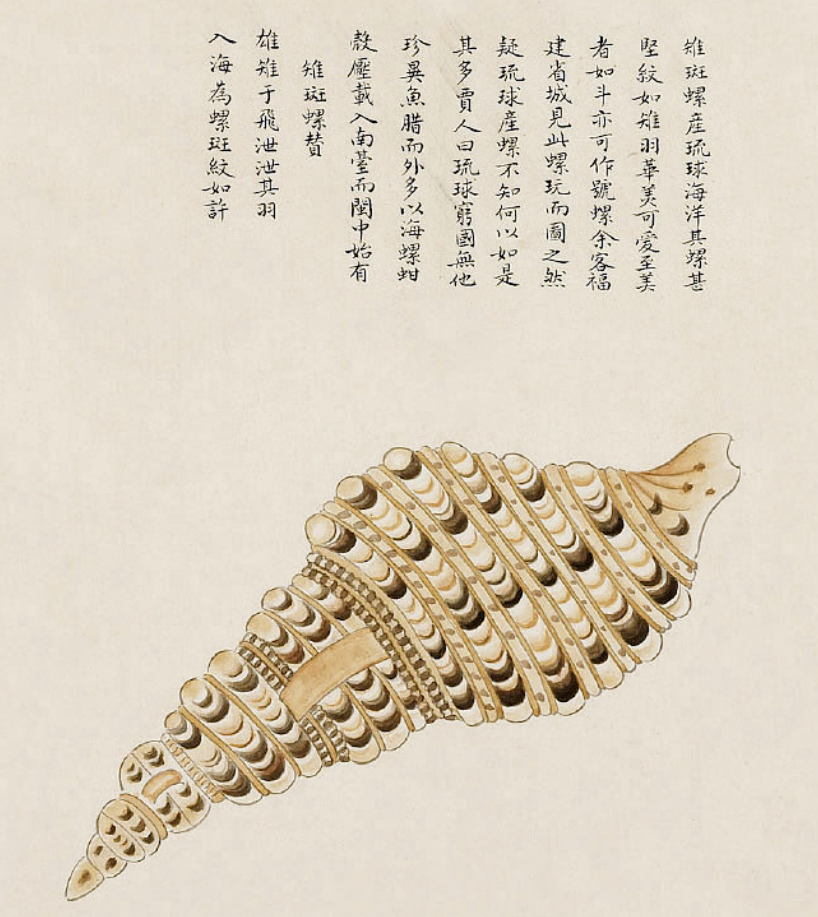 雉斑螺産琉球海洋其螺甚
堅紋如雉羽華美可愛至美
者如斗亦可作號螺余客福
建省城見此螺玩而圖之然
疑琉球産螺不知何以如是
其多賈人曰琉球窮國無他
珍異魚腊而外多以海螺蚶
殼壓載入南臺而閩中始有
雉斑螺贊
雄雉于飛泄泄其羽
入海為螺斑紋如許